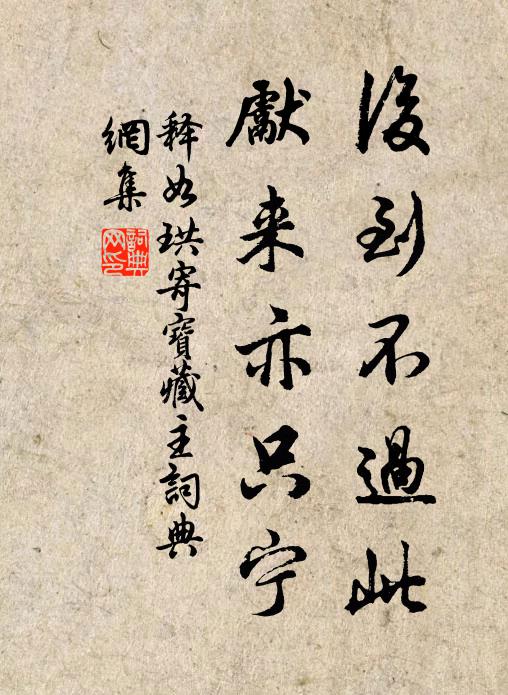 後到不過此
獻来亦只宁
释如珙寄寶藏主詞典
網集
詞典網印